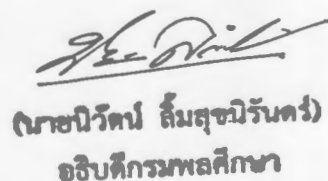 (นายนิวัตน์ ลิ้มสุขนิรันดร์)
อธิบดีกรมพลศึกษา